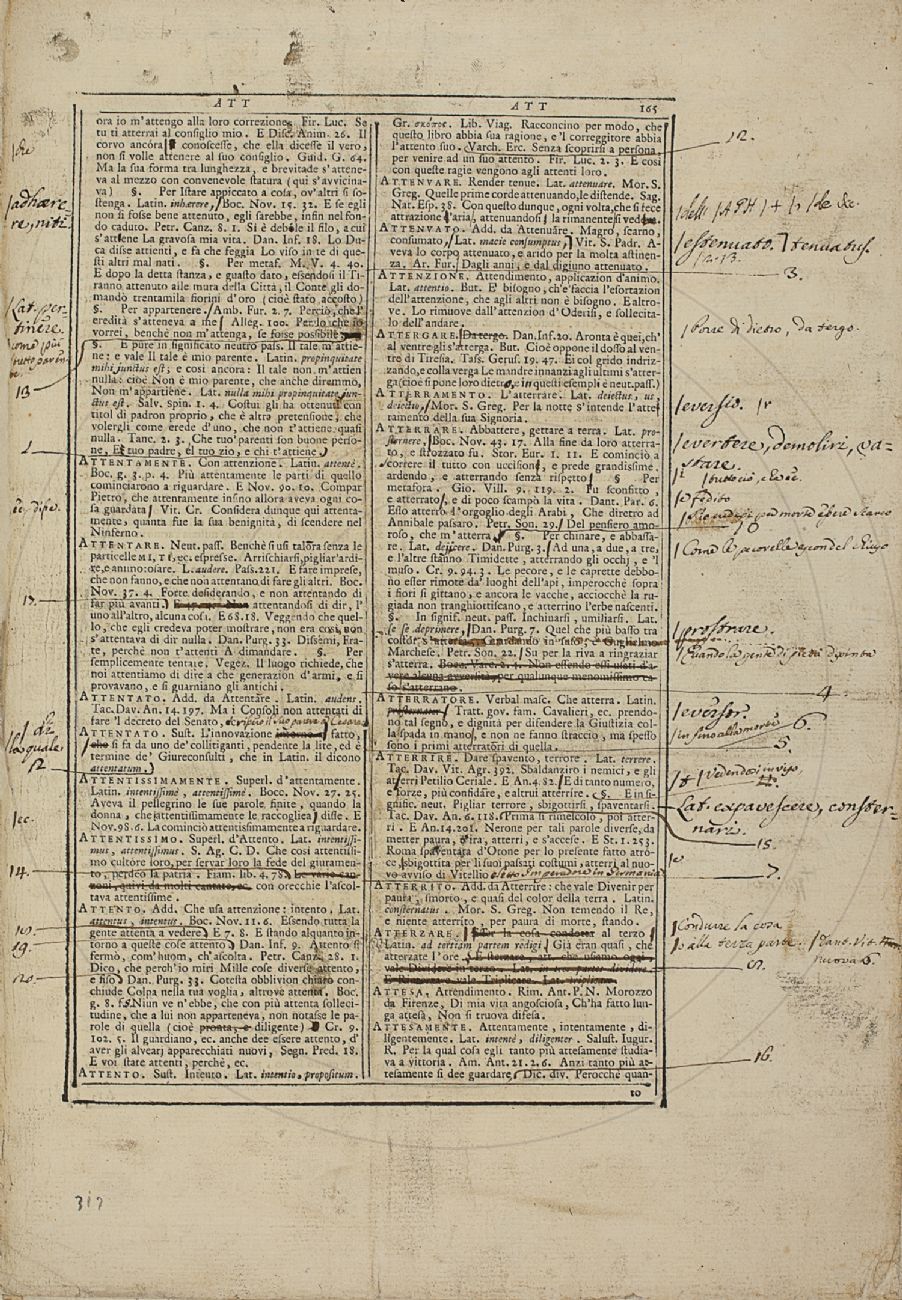 ATT
ATT 165
ora io m'attengo alla loro correzione. Fir. Luc. Se
tu ti atterrai al consiglio mio. E Disc. Anim. 26. Il
corvo ancóra conoscesse, che ella dicesse il vero,
non si volle attenere al suo consiglio. Guid. G. 64.
Ma la sua forma tra lunghezza, e brevitade s'attene-
va al mezzo con convenevole statura (qui s'avvicina-
va) §. Per Istare appiccato a cosa, ov'altri si so-
stenga. Latin. inhærere, Boc. Nov. 15. 32. E se egli
non si fosse bene attenuto, egli sarebbe, infin nel fon-
do caduto. Petr. Canz. 8. 1. Si è debile il filo, a cui
s'attiene La gravosa mia vita. Dan. Inf. 18. Lo Du-
ca disse attienti, e fa che feggia Lo viso in te di que-
sti altri mal nati. §. Per metaf. M. V. 4. 40.
E dopo la detta stanza, e guasto dato, essendosi il Ti-
ranno attenuto alle mura della Città, il Conte gli do-
mandò trentamila fiorini d'oro (cioè stato accosto)
§. Per appartenere. Amb. Fur. 2. 7. Perciò, che l'
eredità s'atteneva a me Alleg. 100. Per lo che io
vorrei, benchè non m'attenga, se fosse possibile
§. E pure in significato neutro pass. Il tale m'attie-
ne: e vale Il tale è mio parente. Latin. propinquitate
mihi junctus est; e cosi ancora: Il tale non m'attien
nulla: cioè Non è mio parente, che anche diremmo,
Non m'appartiene. Lat. nulla mihi propinquitate jun-
ctus est. Salv. Spin. 1. 4. Costui gli ha ottenuti con
titol di padron proprio, che è altro pretensione, che
volergli come erede d'uno, che non t'attiene quasi
nulla. Tanc. 2. 3. Che tuo' parenti son buone perso-
ne, E'l tuo padre, e'l tuo zio, e chi t'attiene.
ATTENTAMENTE. Con attenzione. Latin. attentè.
Boc. g. 3. p. 4. Più attentamente le parti di quello
cominciarono a riguardare. E Nov. 90. 10. Compar
Pietro, che attentamente infino allora aveva ogni co-
sa guardata Vit. Cr. Considera dunque qui attenta-
mente, quanta fue la sua benignità, di scendere nel
Ninferno.
ATTENTARE. Neut. pass. Benchè si usi talora senza le
particelle MI, TI, ec. espresse. Arrischiarsi, pigliar'ardi-
re, e animo: osare. L. audere. Pass. 221. E fare imprese,
che non fanno, e che non attentano di fare gli altri. Boc.
Nov. 37. 4. Forte desiderando, e non attentando di
far più avanti attentandosi di dir, l'
uno all'altro, alcuna cosa. E 68. 18. Veggendo che quel-
lo, che egli credeva poter mostrare, non era così, non
s'attentava di dir nulla. Dan. Purg. 33. Dissemi, Fra-
te, perchè non t'attenti A dimandare. §. Per
semplicemente tentare. Vegez. Il luogo richiede, che
noi attentiamo di dire a che generazion d'armi, e si
provavano, e si guarniano gli antichi.
ATTENTATO. Add. da Attentare. Latin. audens.
Tac. Dav. An. 14. 197. Ma i Consoli non attentati di
fare 'l decreto del Senato,
ATTENTATO. Sust. L'innovazione fatto,
che si fa da uno de' collitiganti, pendente la lite, ed è
termine de' Giureconsulti, che in Latin. il dicono
attentatum.
ATTENTISSIMAMENTE. Superl. d'attentamente.
Latin. intentissimè, attentissimè. Bocc. Nov. 27. 25.
Aveva il pellegrino le sue parole finite, quando la
donna, che attentissimamente le raccogliea disse. E
Nov. 98. 6. La cominciò attentissimamente a riguardare.
ATTENTISSIMO. Superl. d'Attento. Lat. intentissi-
mus, attentissimus. S. Ag. C. D. Che così attentissi-
mo cultore loro, per servar loro la fede del giuramen-
to, perdeo la patria. Fiam. lib. 4. 78. Le varie can-
zoni, quivi da molti cantate, ec. con orecchie l'ascol-
tava attentissime.
ATTENTO. Add. Che usa attenzione: intento, Lat.
attentus, intentus. Boc. Nov. 11. 6. Essendo tutta la
gente attenta a vedere E 7. 8. E stando alquanto in-
torno a queste cose attento Dan. Inf. 9. Attento si
fermò, com'huom, ch'ascolta. Petr. Canz. 28. 1.
Dico, che perch'io miri Mille cose diverse attento,
e fiso Dan. Purg. 33. Cotesta obblivion chiaro con-
chiude Colpa nella tua voglia, altrove attenta. Boc.
g. 8. f. Niun ve n'ebbe, che con più attenta solleci-
tudine, che a lui non apparteneva, non notasse le pa-
role di quella (cioè pronta, e diligente) Cr. 9.
102. 5. Il guardiano, ec. anche dee essere attento, d'
aver gli alvearj apparecchiati nuovi. Segn. Pred. 18.
E voi state attenti, perchè, ec.
ATTENTO. Sust. Intento. Lat. intentio, propositum.
Gr. σκόπος. Lib. Viag. Racconcino per modo, che
questo libro abbia sua ragione, e 'l correggitore abbia
l'attento suo. Varch. Erc. Senza scoprirsi a persona
per venire ad un suo attento. Fir. Luc. 2. 3. E così
con queste ragie vengono agli attenti loro.
ATTENUARE. Render tenue. Lat. attenuare. Mor. S.
Greg. Quelle prime corde attenuando, le distende. Sag.
Nat. Esp. 38. Con questo dunque, ogni volta, che si fece
attrazione l'aria, attenuandosi la rimanente si vedeva
ATTENUATO. Add. da Attenuare. Magro, scarno,
consumato, Lat. macie consumptus, Vit. S. Padr. A-
veva lo corpo attenuato, e arido per la molta astinen-
za. Ar. Fur. Dagli anni, e dal digiuno attenuato.
ATTENZIONE. Attendimento, applicazion d'animo.
Lat. attentio. But. E' bisogno, ch'e' faccia l'esortazion
dell'attenzione, che agli altri non è bisogno. E altro-
ve. Lo rimuove dall'attenzion d'Oderisi, e sollecita-
lo dell'andare.
ATTERGARE. Da tergo. Dan. Inf. 20. Aronta è quei, ch'
al ventre gli s'atterga. But. Cioè oppone il dosso al ven-
tre di Tiresia. Tass. Gerus. 19. 47. Ei col grido indriz-
zando, e colla verga Le mandre innanzi agli ultimi s'atter-
ga (cioè si pone loro dietro, e in questi esempli è neut. pass.)
ATTERRAMENTO. L'atterrare. Lat. deiectus, us,
deiectio, Mor. S. Greg. Per la notte s'intende l'atter-
ramento della sua Signoria.
ATTERRARE. Abbattere, gettare a terra. Lat. pro-
sternere, Boc. Nov. 43. 17. Alla fine da loro atterra-
to, e strozzato fu. Stor. Eur. 1. 11. E cominciò a
scorrere il tutto con uccisioni, e prede grandissime,
ardendo, e atterrando senza rispetto §. Per
metafora. Gio. Vill. 9. 119. 2. Fu sconfitto,
e atterrato, e di poco scampò la vita. Dant. Par. 6.
Esso atterrò l'orgoglio degli Arabi, Che diretro ad
Annibale passaro. Petr. Son. 29. Del pensiero amo-
roso, che m'atterra, §. Per chinare, e abbassa-
re. Lat. dejicere. Dan. Purg. 3. Ad una, a due, a tre,
e l'altre stanno Timidette, atterrando gli occhi, e 'l
muso. Cr. 9. 94. 3. Le pecore, e le caprette debbo-
no esser rimote da' luoghi dell'api, imperocchè sopra
i fiori si gittano, e ancora le vacche, acciocchè la ru-
giada non tranghiottiscano, e atterrino l'erbe nascenti.
§. In signif. neut. pass. Inchinarsi, umiliarsi. Lat.
se se deprimere, Dan. Purg. 7. Quel che più basso tra
costor s'atterra, Guardando in suso, è Guiglielmo
Marchese. Petr. Son. 22. Su per la riva a ringraziar
s'atterra. Bocc. Varc. 2. 4. Non essendo essi usati d'a-
vere alcuna avversità, per qualunque menomissimo ca-
so s'atterrano.
ATTERRATORE. Verbal masc. Che atterra. Latin.
Tratt. gov. fam. Cavalieri, ec. prendo-
no tal segno, e dignità per difendere la Giustizia col-
la spada in mano, e non ne fanno straccio, ma spesso
sono i primi atterratori di quella.
ATTERRIRE. Dare spavento, terrore. Lat. terrere.
Tac. Dav. Vit. Agr. 392. Sbaldanzirò i nemici, e gli
atterrì Petilio Ceriale. E An. 4. 92. E di tanto numero,
e forze, più confidare, e altrui atterrire. §. E in si-
gnific. neut. Pigliar terrore, sbigottirsi, spaventarsi.
Tac. Dav. An. 6. 118. Prima si rimescolò, poi atter-
rì. E An. 14. 201. Nerone per tali parole diverse, da
metter paura, o ira, atterrì, e s'accese. E St. 1. 253.
Roma spaventata d'Otone per lo presente fatto atro-
ce, sbigottita per li suoi passati costumi, atterrì al nuo-
vo avviso di Vitellio eletto Imperadore in Germania
ATTERRITO. Add. da Atterrire: che vale Divenir per
paura smorto, e quasi del color della terra. Latin.
consternatus. Mor. S. Greg. Non temendo il Re,
e niente atterrito per paura di morte, stando.
ATTERZARE. Far la cosa condotta al terzo
Latin. ad tertiam partem redigi Già eran quasi, che
atterzate l'ore
ATTESA. Attendimento. Rim. Ant. P. N. Morozzo
da Firenze, Di mia vita angosciosa, Ch'ha fatto lun-
ga attesa, Non si truova difesa.
ATTESAMENTE. Attentamente, intentamente, di-
ligentemente. Lat. intentè, diligenter. Salust. Iugur.
R. Per la qual cosa egli tanto più attesamente studia-
va a vittoria. Am. Ant. 21. 2. 6. Anzi tanto più at-
tesamente si dee guardare, Dic. div. Perocchè quan-
to
adhære
re, niti.
Lat. per-
tinere.
13
13.
la quale
12
14.
19.
20
12.
estenuato. tenuatus.
3.
Porse di dietro, da tergo.
eversio.
evertere, demoliri, va-
stare.
prostrare.
4.
eversor.
6.
5.
Lat. expavescere, conster-
nari.
15.
7.
Condurre la cosa
alla terza parte.
9.
16.
317